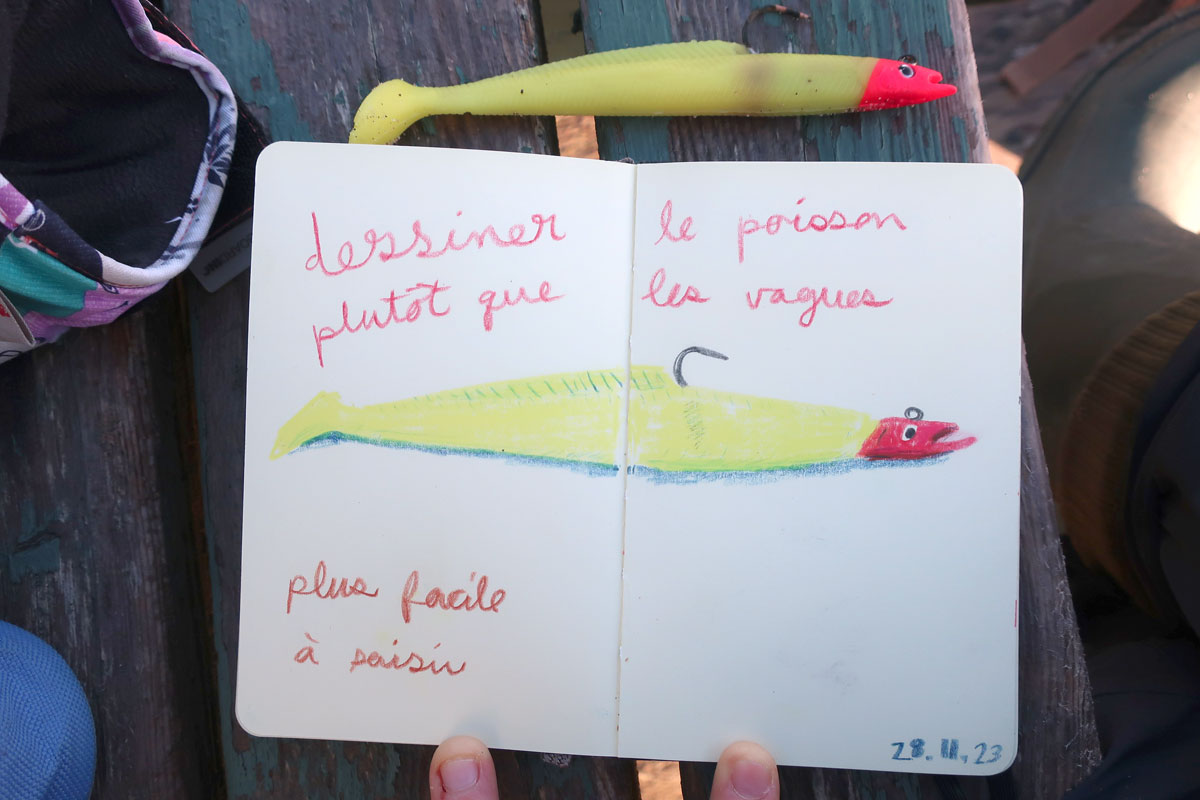 dessiner le poisson
plutôt que les vagues
plus facile
à saisir
28.11.23